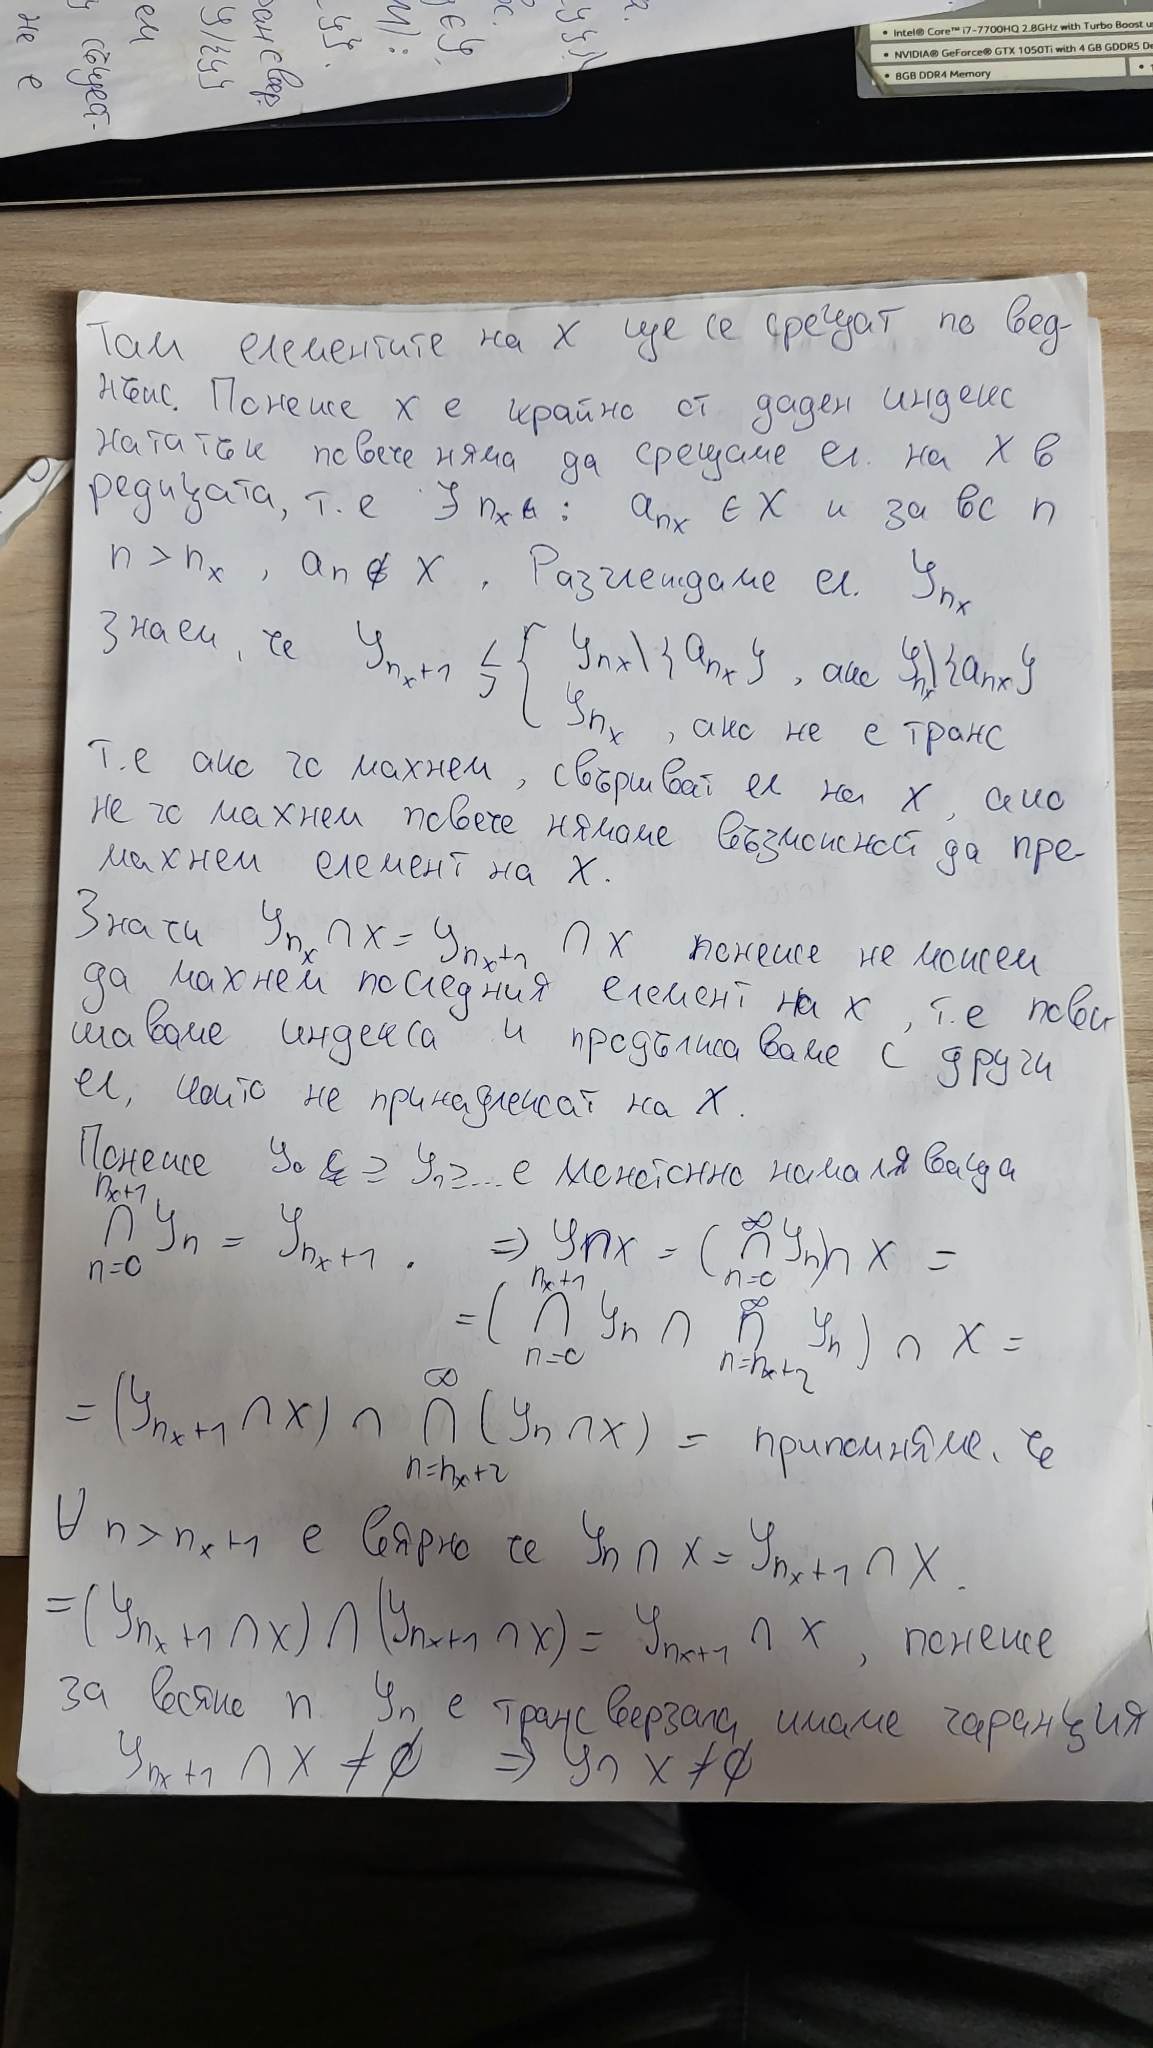 • Intel® Core™ i7-7700HQ 2.8GHz with Turbo Boost
• NVIDIA® GeForce® GTX 1050Ti with 4 GB GDDR5
• 8GB DDR4 Memory
Там елементите на X ще се срещат по вед-
нъж. Понеже X е крайно от даден индекс
нататък повече няма да срещаме ел. на X в
редицата, т.е ∃ n_x : a_{n_x} ∈ X и за вс n
n > n_x , a_n ∉ X . Разглеждаме ел. Y_{n_x}
Знаем, че Y_{n_x+1} ⇆ { Y_{n_x} \ {a_{n_x}} , ако Y_{n_x} \ {a_{n_x}}
Y_{n_x} , ако не е транс
Т.е ако го махнем, свършват ел на X, ако
не го махнем повече нямаме възможност да пре-
махнем елемент на X.
Значи Y_{n_x} ∩ X = Y_{n_x+1} ∩ X понеже не можем
да махнем последния елемент на X, т.е пови
шаваме индекса и продължаваме с други
ел, които не принадлежат на X.
Понеже Y_0 ⊇ Y_1 ⊇ ... е монотонно намаляваща
⋂_{n=0}^{n_x+1} Y_n = Y_{n_x+1} . ⇒ Y ∩ X = ( ⋂_{n=0}^{∞} Y_n ) ∩ X =
= ( ⋂_{n=0}^{n_x+1} Y_n ∩ ⋂_{n=n_x+2}^{∞} Y_n ) ∩ X =
= (Y_{n_x+1} ∩ X) ∩ ⋂_{n=n_x+2}^{∞} (Y_n ∩ X) = припомняме, че
∀ n > n_x+1 е вярно че Y_n ∩ X = Y_{n_x+1} ∩ X .
= (Y_{n_x+1} ∩ X) ∩ (Y_{n_x+1} ∩ X) = Y_{n_x+1} ∩ X , понеже
за всяко n Y_n е трансверзала, имаме гаранция
Y_{n_x+1} ∩ X ≠ ∅ ⇒ Y ∩ X ≠ ∅